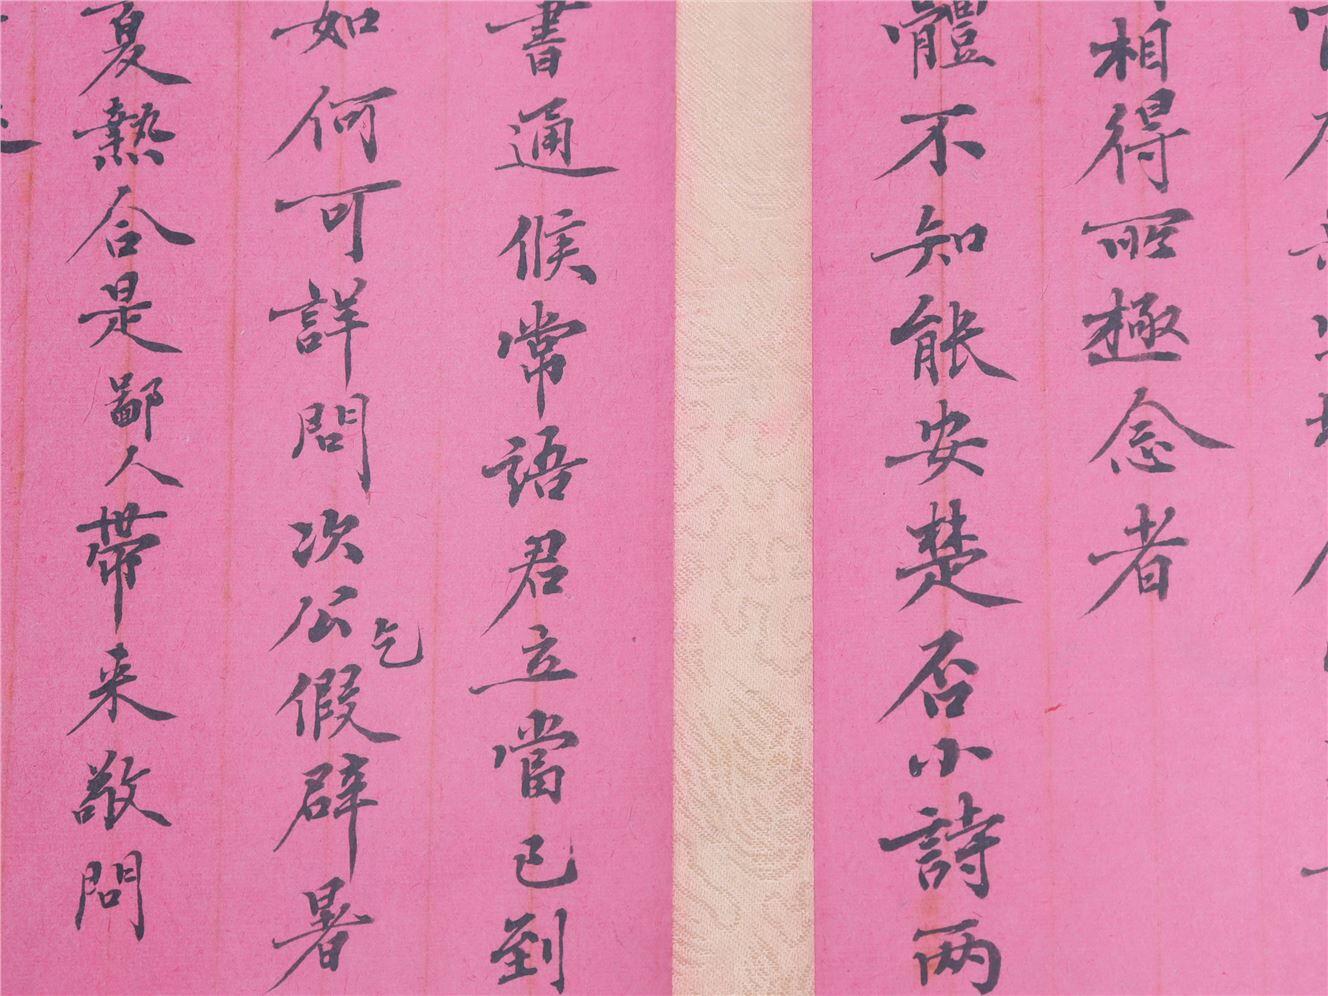 相得所極念者
體不知能安楚否小詩两
書通候常語君立當已到
如何可詳問次公乞假辟暑
夏熱合是鄙人帶来敬問